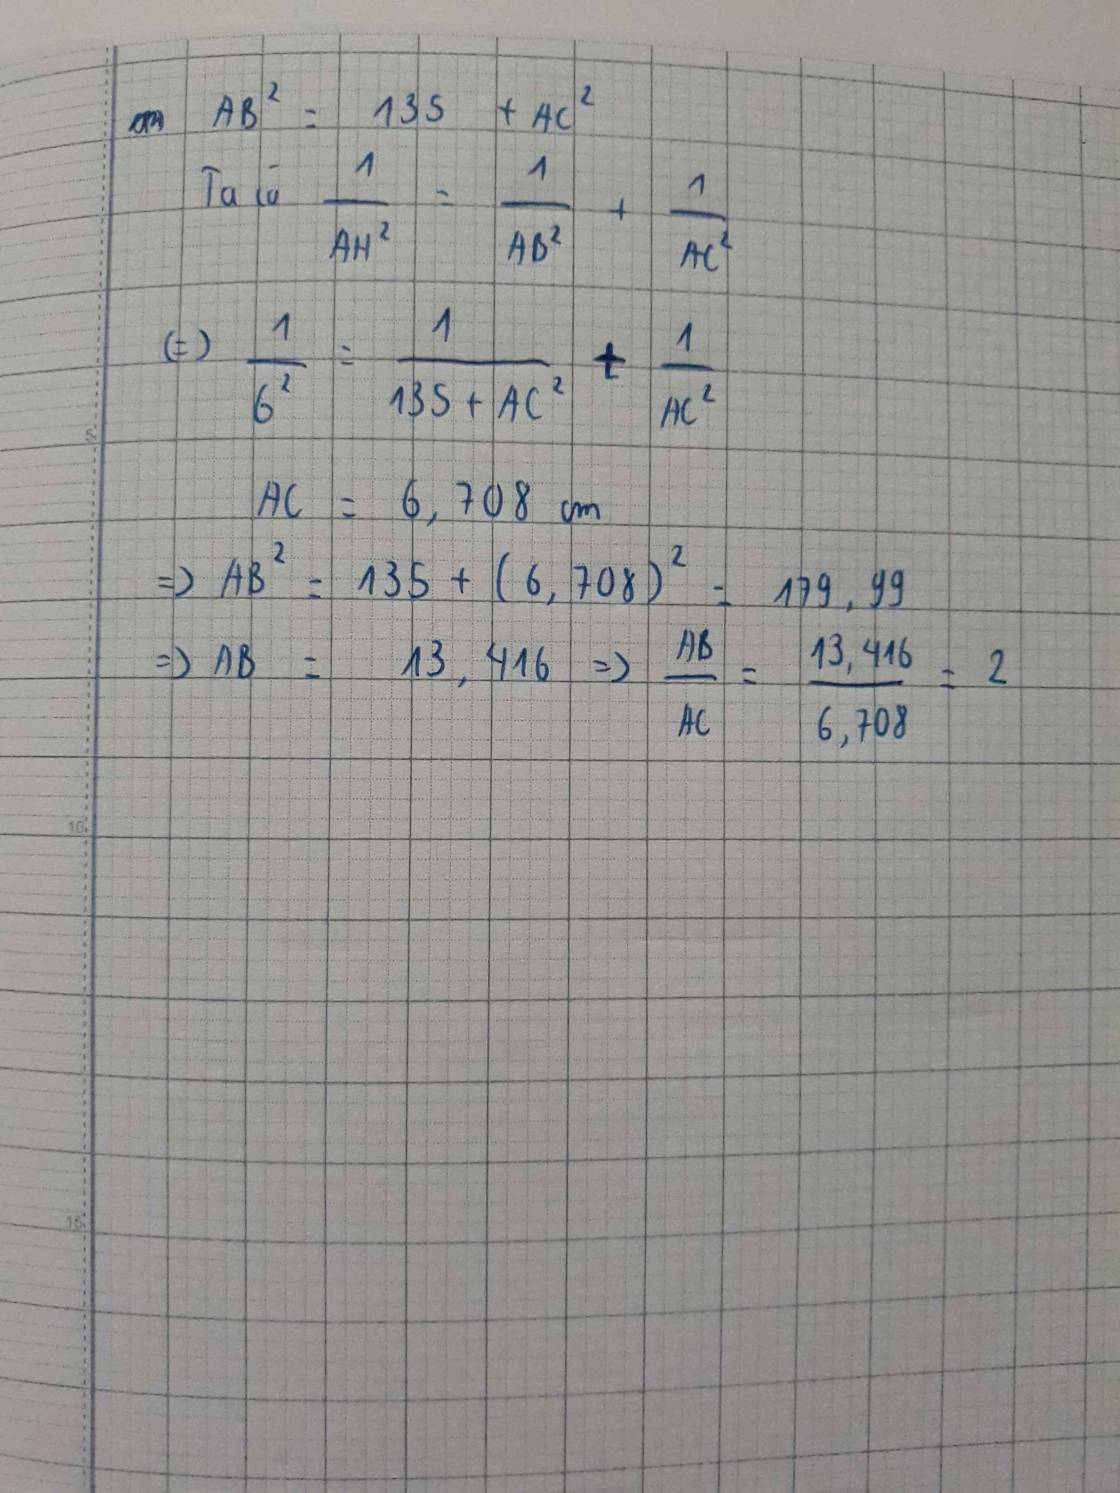 cm AB² = 135 + AC²
Ta có 1/AH² = 1/AB² + 1/AC²
(=) 1/6² = 1/(135 + AC²) + 1/AC²
AC = 6,708 cm
5
=> AB² = 135 + (6,708)² = 179,99
=> AB = 13,416 => AB/AC = 13,416/6,708 = 2
10
15